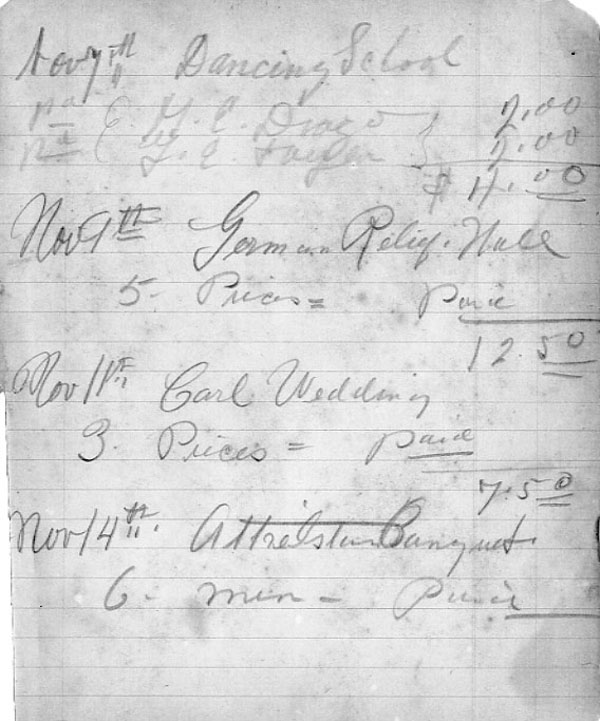 Nov 7th Dancing School
pd E. G. E. Drago 2.00
pd G. E. 2.00
$ 4.00
Nov 9th German Relig. Hall
5. Pieces = Paid
12.50
Nov 11th Carl Wedding
3. Pieces = paid
7.50
Nov 14th. Banquet.
6 - men - Paid